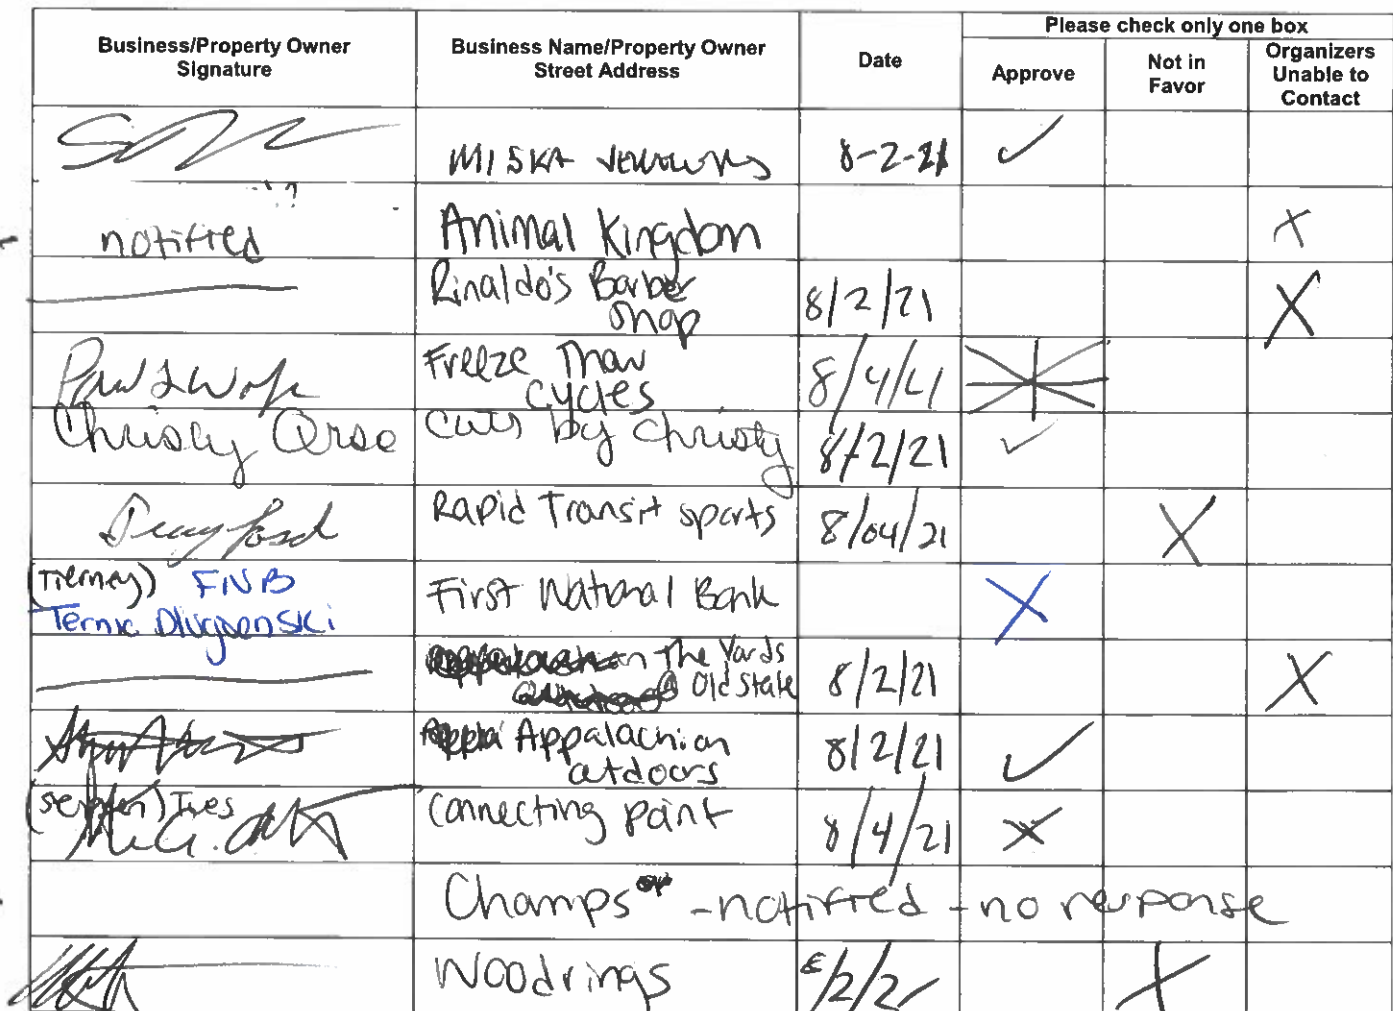 Please check only one box
Business/Property Owner
Signature
Business Name/Property Owner
Street Address
Date
Approve
Not in
Favor
Organizers
Unable to
Contact
MISKA 8-2-21 ✓
notified Animal Kingdom X
Rinaldo's Barber
Shop 8/2/21 X
Freeze Thaw
Cycles 8/4/21
Christy Cuts by Christy 8/2/21 ✓
Rapid Transit sports 8/04/21 X
(Tierney) FNB
First National Bank X
The Yards
@ Old State 8/2/21 X
Appalachian
outdoors 8/2/21 ✓
Ives Connecting point 8/4/21 X
Champs - notified - no response
Woodrings 8/2/21 X